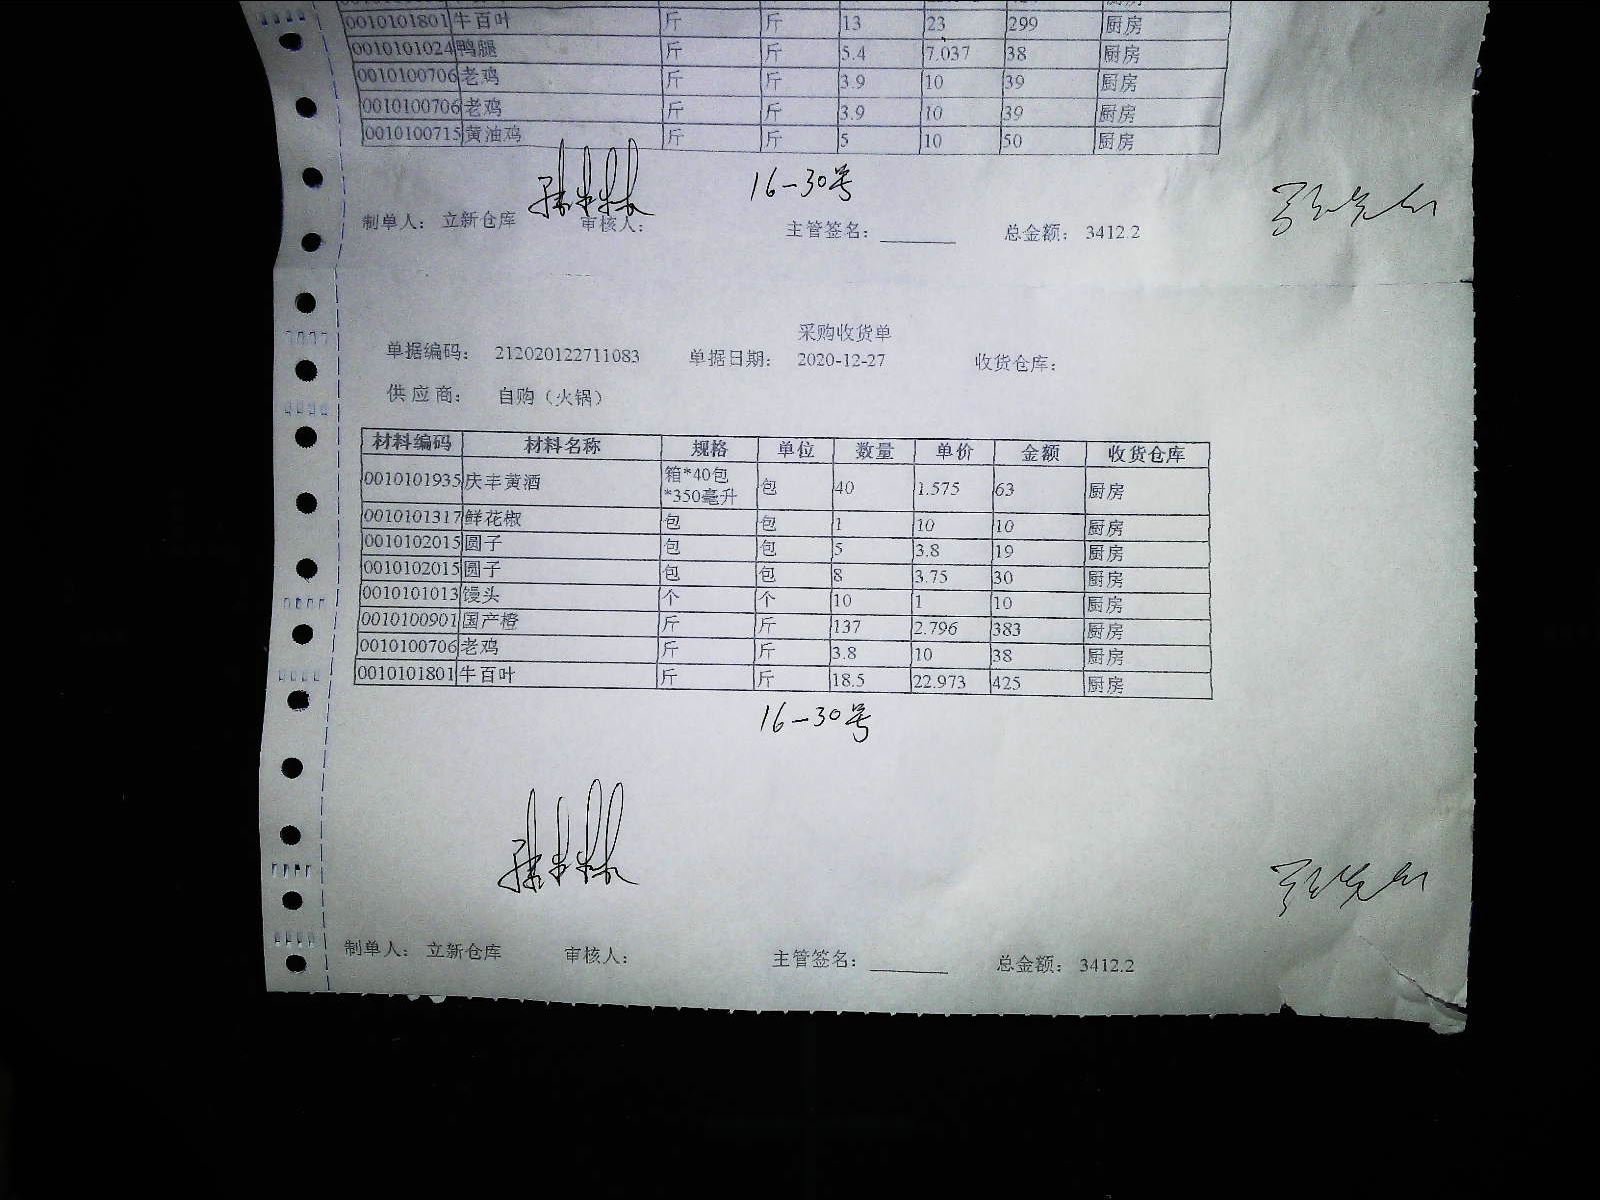 0010101801 牛百叶 斤 斤 13 23 299 厨房
0010101024 鸭腿 斤 斤 5.4 7.037 38 厨房
0010100706 老鸡 斤 斤 3.9 10 39 厨房
0010100706 老鸡 斤 斤 3.9 10 39 厨房
0010100715 黄油鸡 斤 斤 5 10 50 厨房
16-30号
制单人： 立新仓库 审核人： 主管签名：________ 总金额： 3412.2
采购收货单
单据编码： 212020122711083 单据日期： 2020-12-27 收货仓库：
供应商： 自购（火锅）
材料编码 材料名称 规格 单位 数量 单价 金额 收货仓库
0010101935 庆丰黄酒 箱*40包*350毫升 包 40 1.575 63 厨房
0010101317 鲜花椒 包 包 1 10 10 厨房
0010102015 圆子 包 包 5 3.8 19 厨房
0010102015 圆子 包 包 8 3.75 30 厨房
0010101013 馒头 个 个 10 1 10 厨房
0010100901 国产橙 斤 斤 137 2.796 383 厨房
0010100706 老鸡 斤 斤 3.8 10 38 厨房
0010101801 牛百叶 斤 斤 18.5 22.973 425 厨房
16-30号
制单人： 立新仓库 审核人： 主管签名：________ 总金额： 3412.2